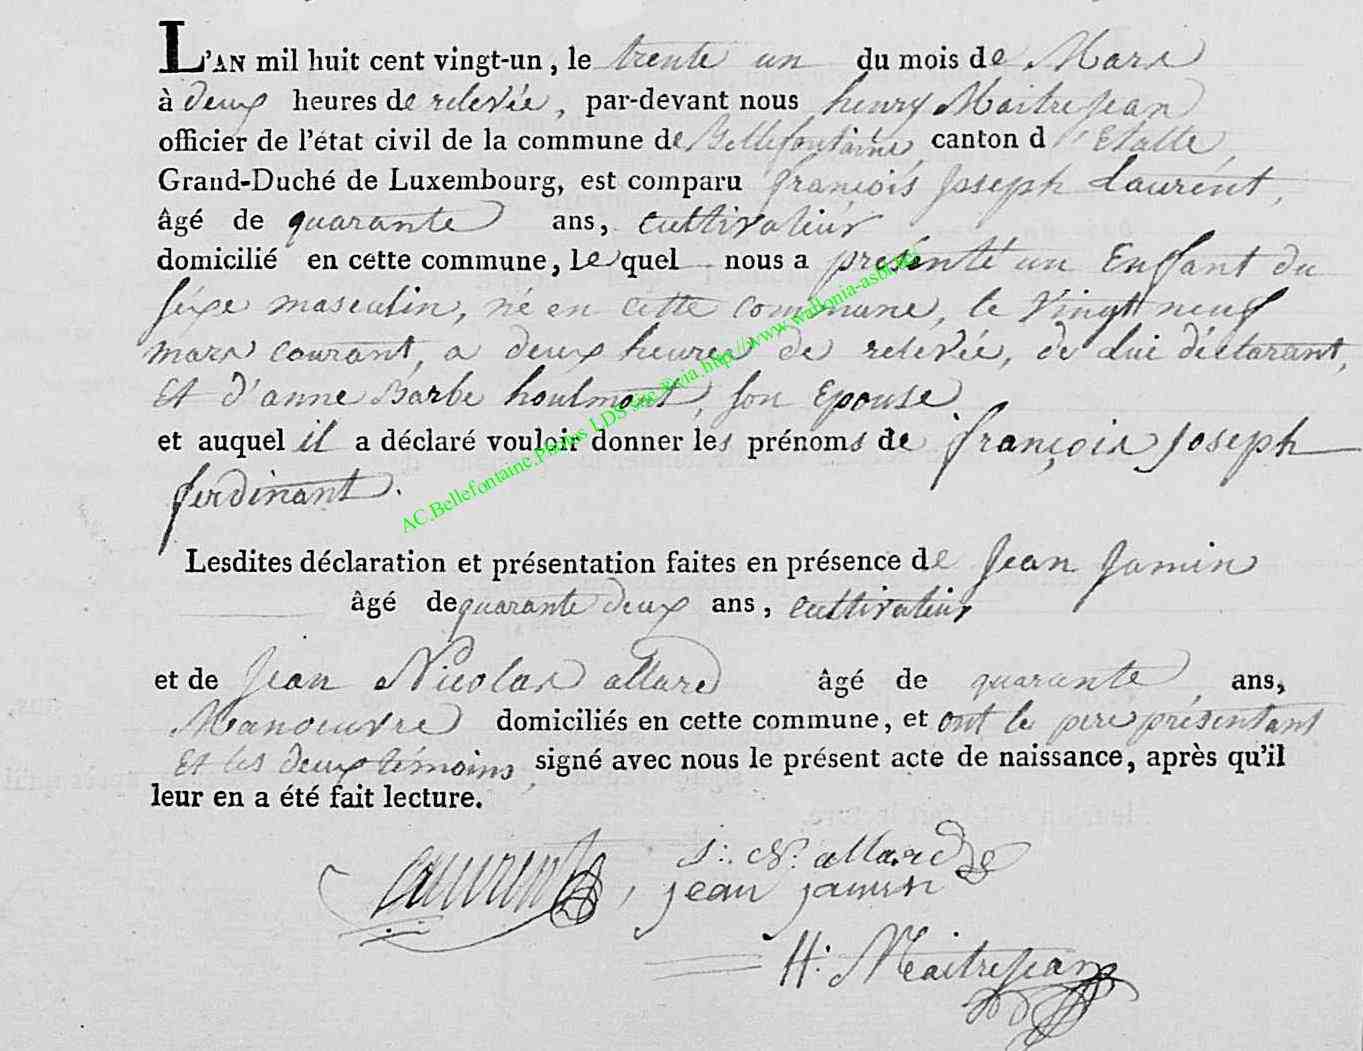 L'AN mil huit cent vingt-un, le trente un du mois de Mars
à deux heures de relevée, par-devant nous henry Maitrejean
officier de l'état civil de la commune de Bellefontaine, canton d'Etalle,
Grand-Duché de Luxembourg, est comparu françois Joseph Laurent,
âgé de quarante ans, cultivateur
domicilié en cette commune, lequel nous a présenté un Enffant du
sexe masculin, né en cette commune, le vingt neuf
mars courant, a deux heures de relevée, de lui déclarant,
Et d'anne Barbe houlmont, son Epouse
et auquel il a déclaré vouloir donner les prénoms de françois Joseph
ferdinant.
Lesdites déclaration et présentation faites en présence de Jean Jamin
âgé de quarante deux ans, cultivateur
et de Jean Nicolas allard âgé de quarante ans,
Manoeuvre domiciliés en cette commune, et ont le pere présentant
Et les deux témoins, signé avec nous le présent acte de naissance, après qu'il
leur en a été fait lecture.
Laurent J: N: allard
jean jamin
H: Maitrejean
AC.Bellefontaine.Photos LDS via http://www.wallonia-asbl.be/